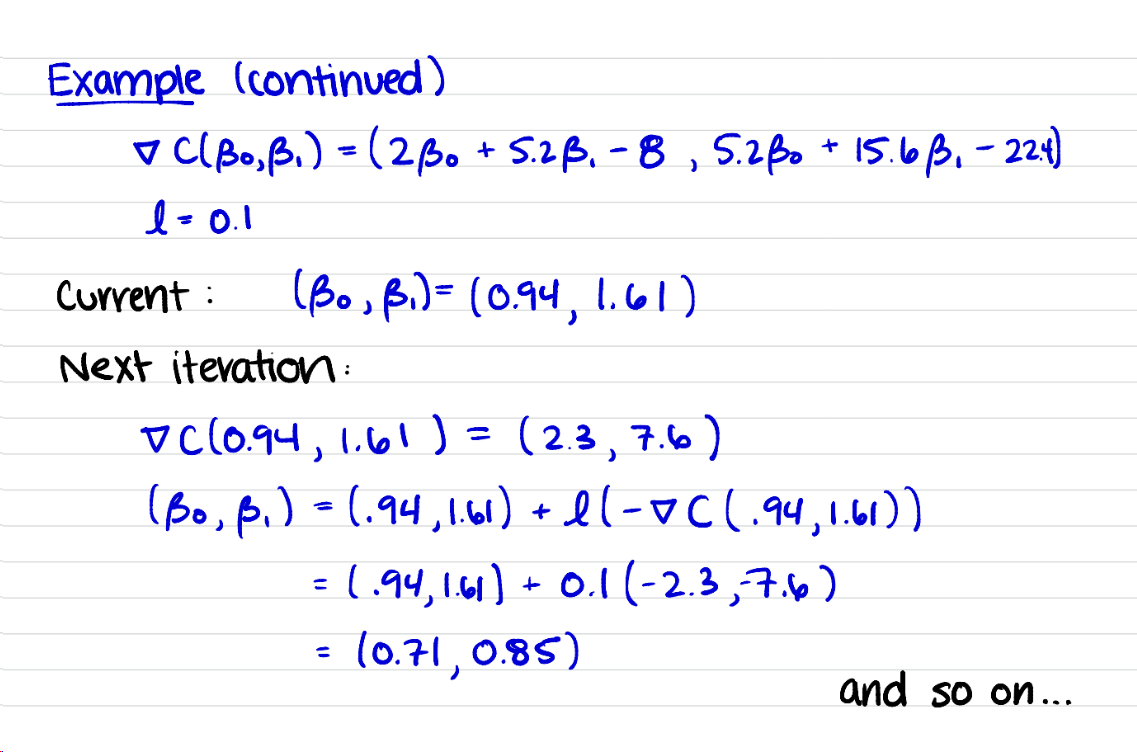 Example (continued)
∇ C(β₀,β₁) = (2β₀ + 5.2β₁ - 8 , 5.2β₀ + 15.6β₁ - 22.4)
l = 0.1
Current : (β₀ , β₁) = (0.94 , 1.61)
Next iteration :
∇ C(0.94 , 1.61 ) = (2.3 , 7.6 )
(β₀ , β₁) = (.94 , 1.61) + l(-∇ C( .94 , 1.61))
= ( .94, 1.61) + 0.1(-2.3 ,-7.6 )
= (0.71 , 0.85)
and so on...